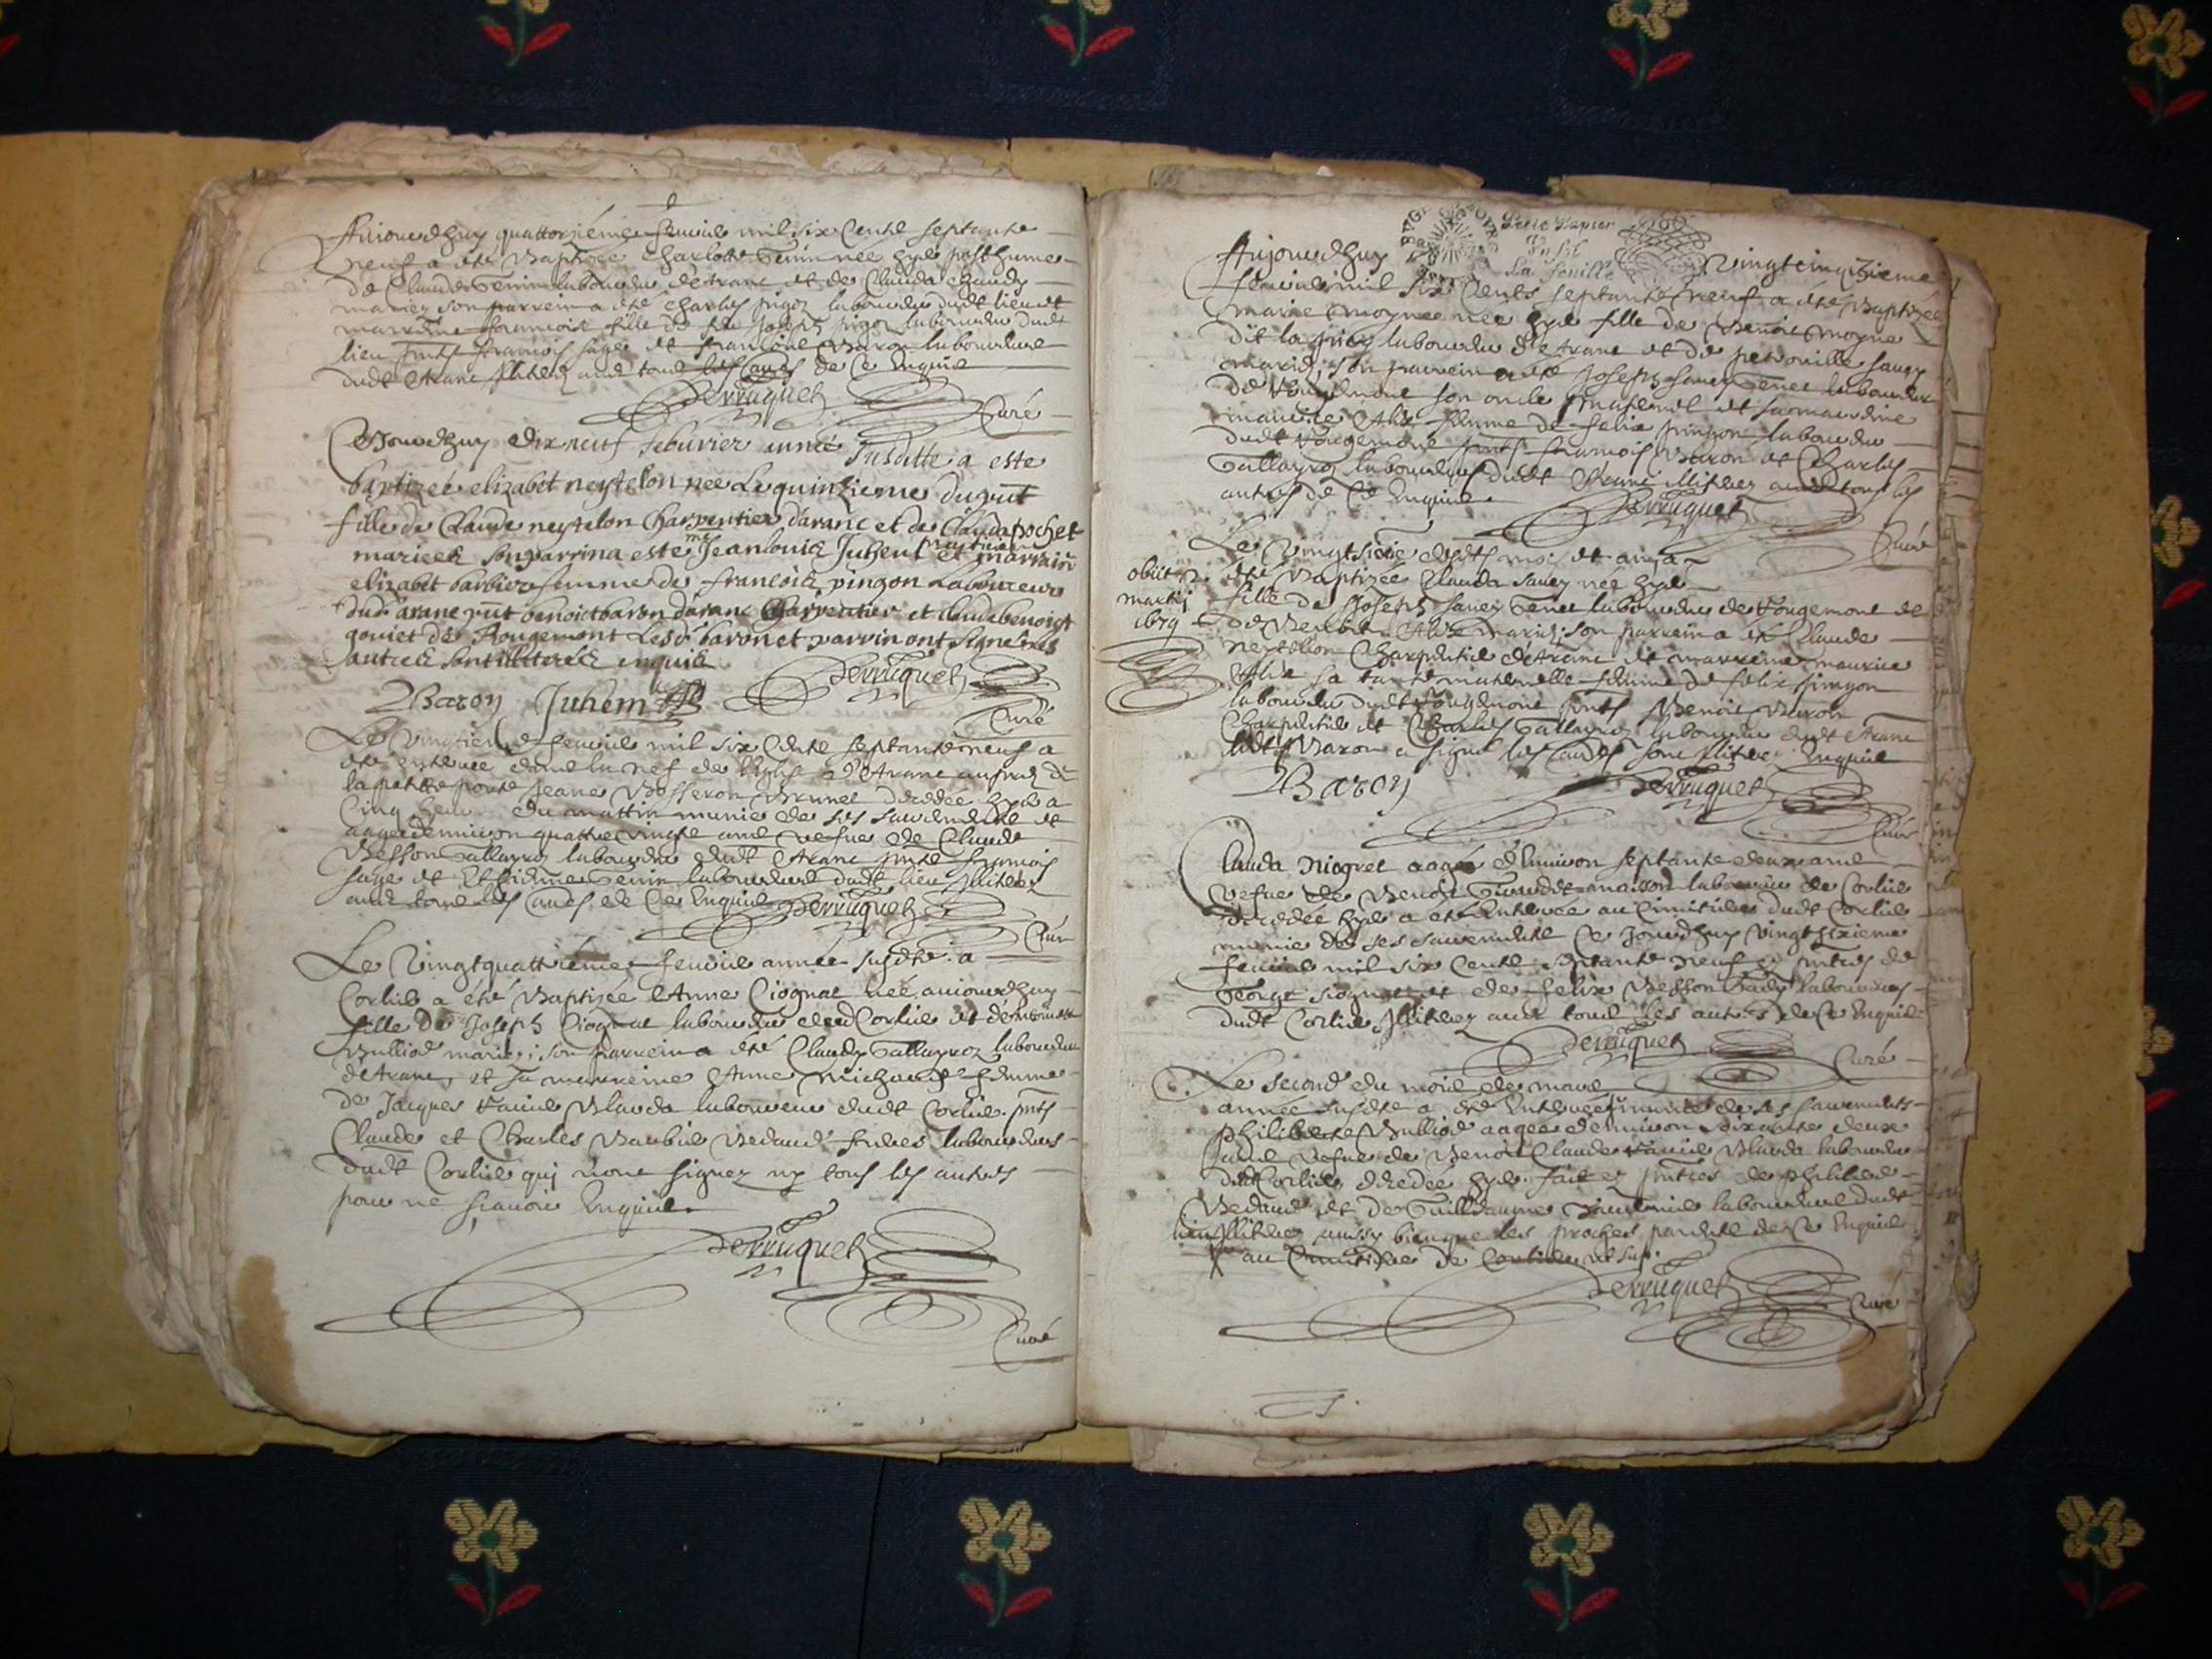 Aujourdhuy quattorziéme feuvrier mil six Centz septante
neuf a eté Baptizée Charlotte née hyer posthume
de Claude laboureur d'Aranc et de Clauda
mariez son parrein a eté Charles pigoz laboureur dudt lieu et
marreine francoise fille de Joseph pigoz laboureur dudt
lieu francois sage et francois Baron laboureurs
dudt Aranc illiterez avec tous les autres de ce Enquis
Derruquet
Curé
Cejourdhuy dix neuf feburier année Susditte a este
baptizée elizabet neytelon née Le quinzieme du pnt
fille de Claude neytelon Charpentier d'aranc et de Claudapochet
mariees Son parrin a este me Jean louis Juhent praticien et marraine
elizabet barbier femme de francois pingon Laboureur
dud aranc pnt benoict baron d'aranc Charpentier et Claude benoigt
goniet de Rougemont Lesd baron et parrin ont Signé les
autres Sont illiterés enquis
Baron Juhent Derruquet
Curé
Le vingtieme feuvrier mil six Centz septante neuf a
eté enterrée dans la nef de l'Eglise d'Aranc aupres de
la petitte porte Jeane Bosseron Brunet décédée hyer a
Cinq heures du mattin munie de ses sacrements et
aagée d'environ quattre vingts ans vefve de Claude
Besson Tallayroz laboureur dudt Aranc francois
sage et Estienne laboureurs dudt lieu illiterez
avec tous les autres de Ce Enquis Derruquet
Curé
Le Vingtquattriéme feuvrier année susdte a
Corlier a été Baptizée Anne Diognat née aujourdhuy
fille de Joseph Diognat laboureur dud Corlier et d'Antoinette
Bulliod mariez; son parrein a eté Claude Tallayroz laboureur
d'Aranc, et sa marreine Anne Michaud femme
de Jacques Favier Blanda laboureur dudt Corlier. pnts
Claude et Charles Barbier Bedaud freres laboureurs
dudt Corlier qui n'ont signez ny tous les autres
pour ne sçavoir Enquis.
Derruquet
Curé
Petit Papier
La feuille
Aujourdhuy Vingtcinqzieme
feuvrier mil six Cents septante neuf a été Baptizée
marie moyne née hyer fille de Benoit moyne
dit la laboureur d'Aranc et de petronille savey
mariez; son parrein a eté Joseph savey laboureur
de Rougemont son oncle maternel et sa marreine
maurise Alix femme de felix pingon laboureur
dudt Rougemont pnts francois Baron et Charles
Tallayroz laboureurs dudt Aranc illiterez avec tous les
autres de Ce Enquis.
Derruquet
Curé
Le Vingtsixie desdts mois et an a
eté Baptizée Clauda savey née hyer
fille de Joseph savey laboureur de Rougemont et
de Benoite Alix mariez; son parrein a eté Claude
neytellion Charpentier d'Aranc et marreine maurise
Alix sa tante maternelle femme de felix pingon
laboureur dudt Rougemont pnts Benoit Baron
Charpentier et Charles Tallayroz laboureur dudt Aranc
ledt Baron a signé les autres sont illiterez Enquis
obiit 2
martij
1679
Baron Derruquet
Curé
Clauda Niogret aagée d'environ septante deux ans
vefve de Benoit laboureur de Corlier
décédée hyer a eté Enterrée au Cimitiere dudt Corlier
munie de ses sacrements Ce Jourdhuy vingtsixieme
feuvrier mil six Centz septante neuf en pntces de
George et de felix Besson laboureurs
dudt Corlier illiterez avec tous les autres de Ce Enquis
Derruquet
Curé
Le second du mois de mars
année susdte a eté Enterrée munie de ses sacrements
philiberte Bulliod aagée d'environ soixante deux
ans vefve de Benoit Claude Favier Blanda laboureur
dudt Corlier décédée hyer. fait en pntces de philibert
Bedaud et de Guilliaume laboureurs dudt
lieu illiterez aussy bien que les proches parents de Ce Enquis
au Cimitiere de Corlier ut sup.
Derruquet
Curé